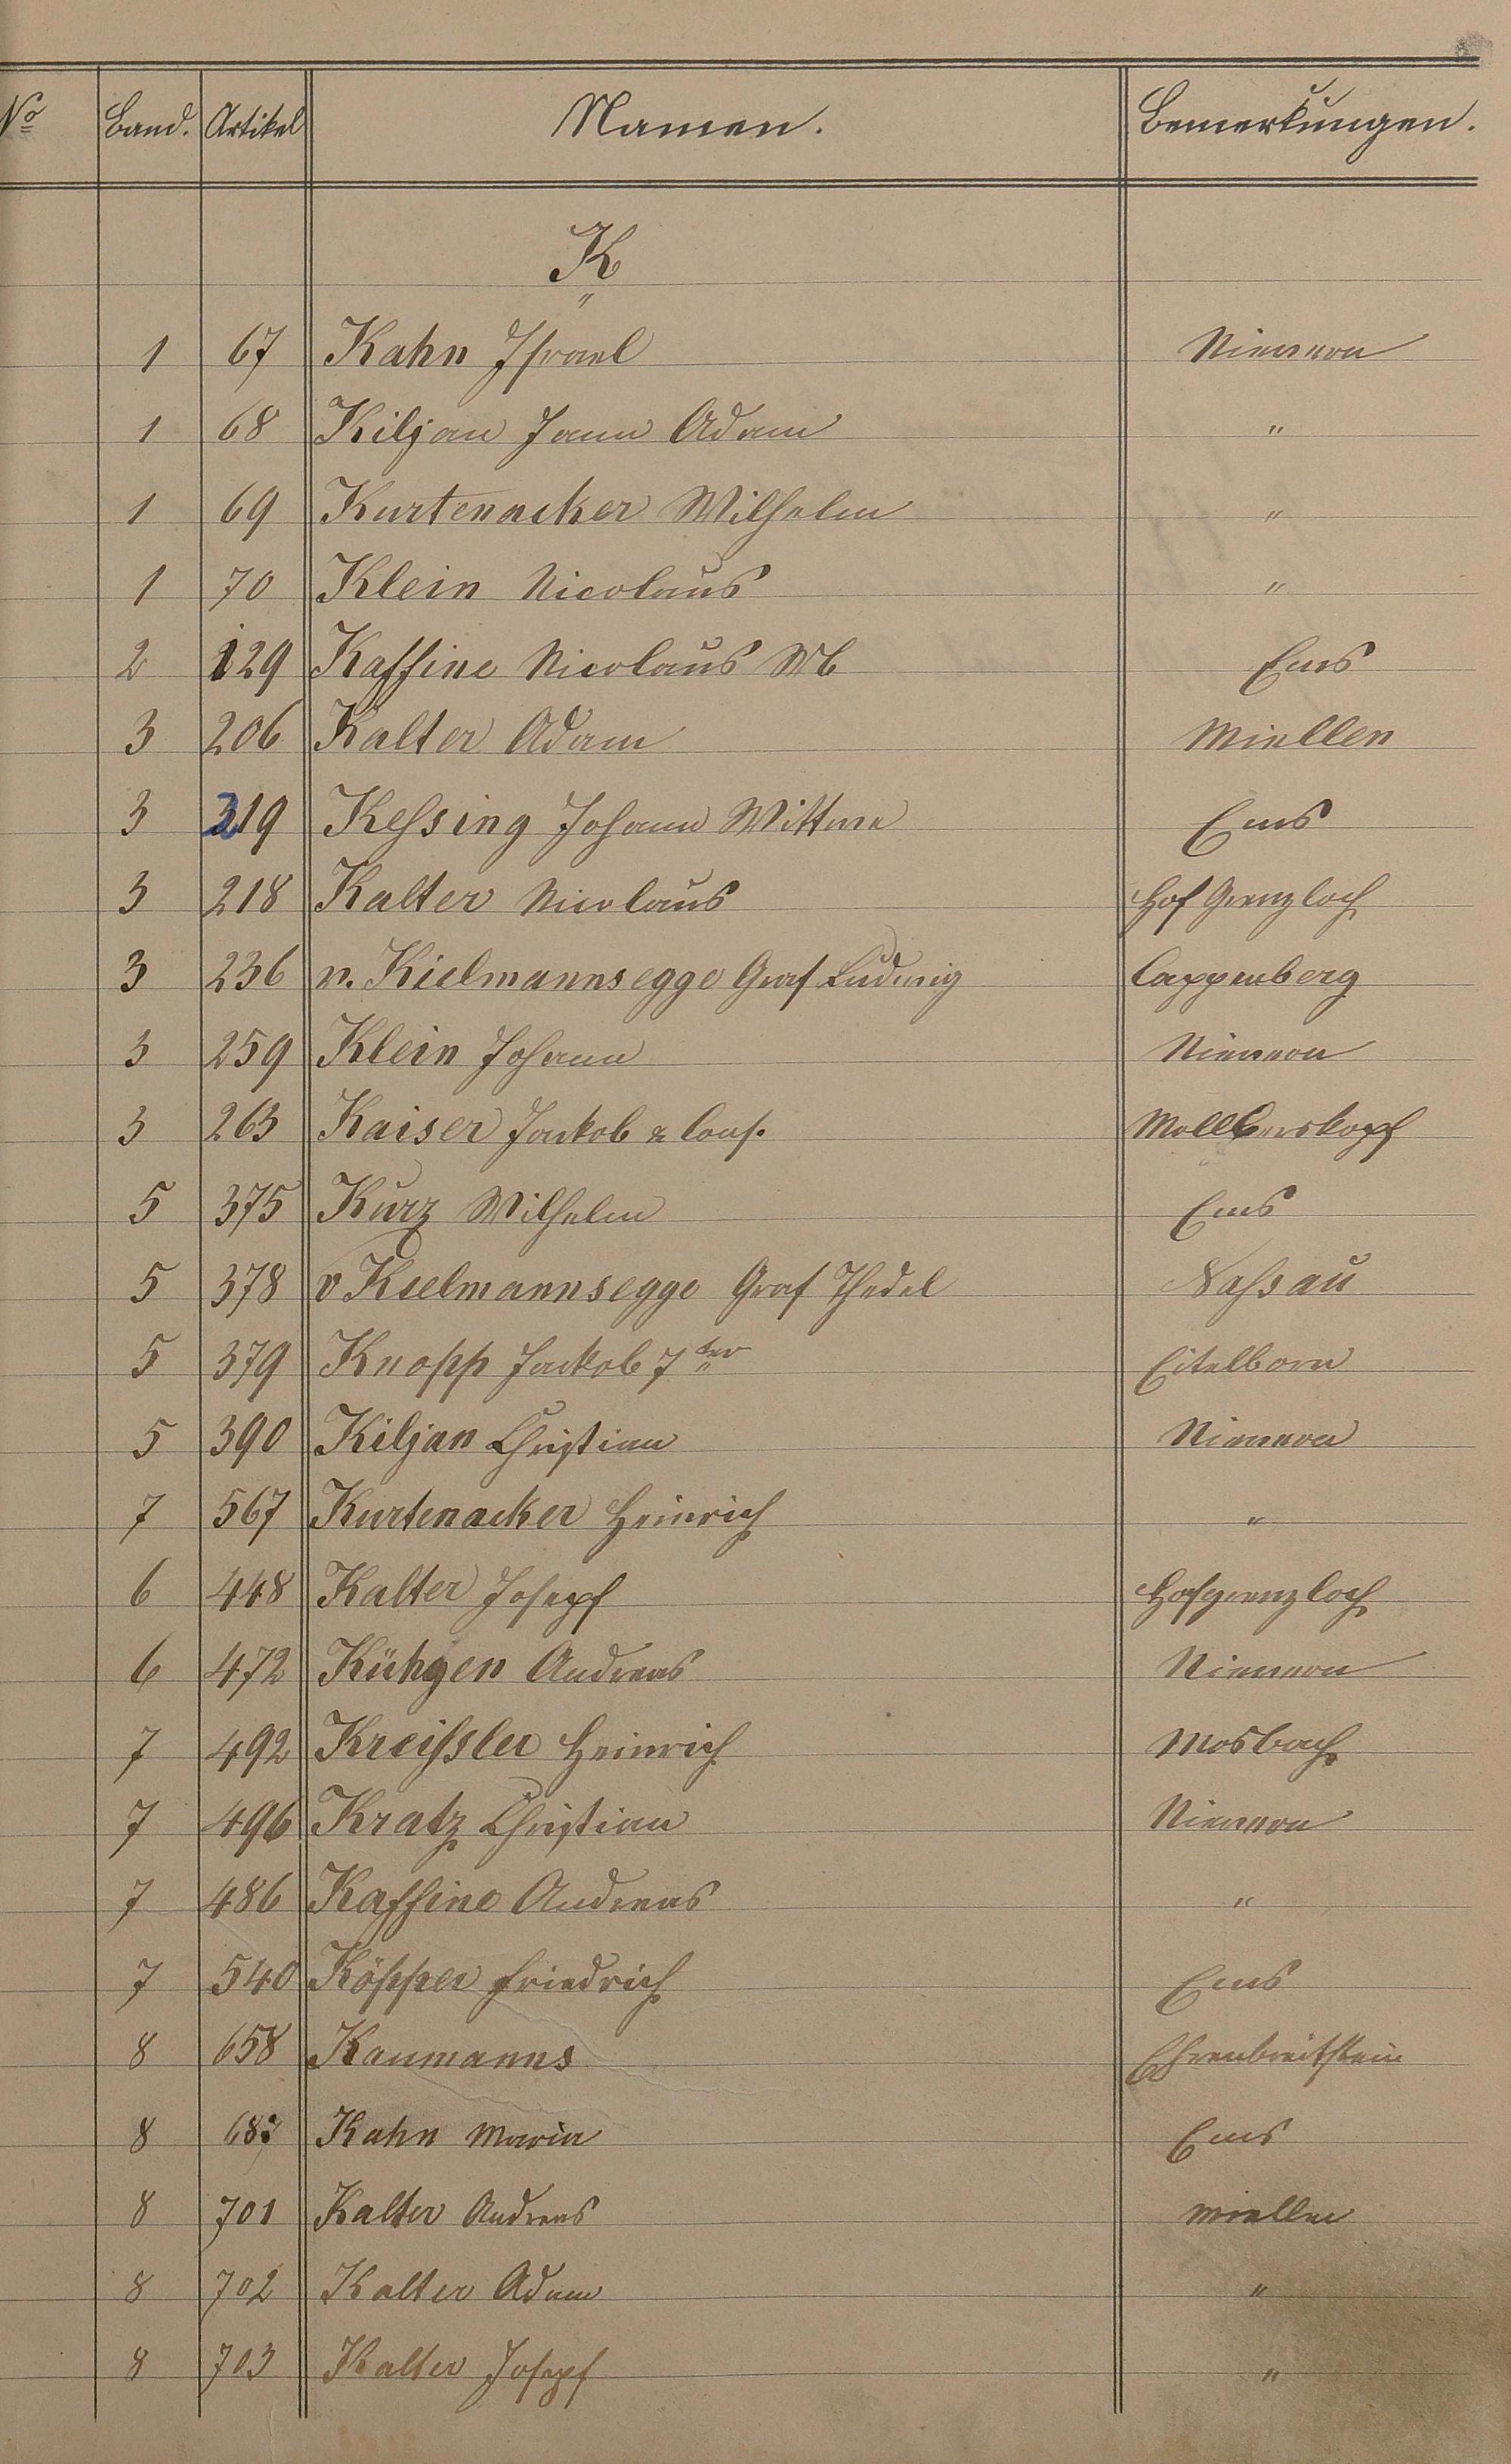 No Band. Artikel Namen. Bemerkungen.
K
1 67 Kahn Israel Nievern
1 68 Kiljan Joann Adam "
1 69 Kurtenacker Wilhelm "
1 70 Klein Nicolaus "
2 129 Kaffine Nicolaus Wb Ems
3 206 Kalter Adam Miellen
3 219 Keßing Johann Wittwe Ems
3 218 Kalter Nicolaus Hof Grenzloch
3 236 v. Kielmannsegge Graf Ludwig Cappenberg
3 259 Klein Johann Nievern
3 263 Kaiser Jackob & Cons. Mollberskopf
5 375 Kurz Wilhelm Ems
5 378 v Kielmannsegge Graf Thedel Naßau
5 379 Knopp Jackob 7ter Eitelborn
5 390 Kiljan Christian Nievern
7 567 Kurtenacker Heinrich "
6 448 Kalter Josepf Hofgrenzloch
6 472 Kühgen Andreas Nievern
7 492 Kreißler Heinrich Mosbach
7 496 Kratz Christian Nievern
7 486 Kaffine Andreas "
7 540 Köpper Friedrich Ems
8 658 Kaumanns Ehrenbreitstein
8 687 Kahn Maria Ems
8 701 Kalter Andreas Miellen
8 702 Kalter Adam "
8 703 Kalter Josepf "